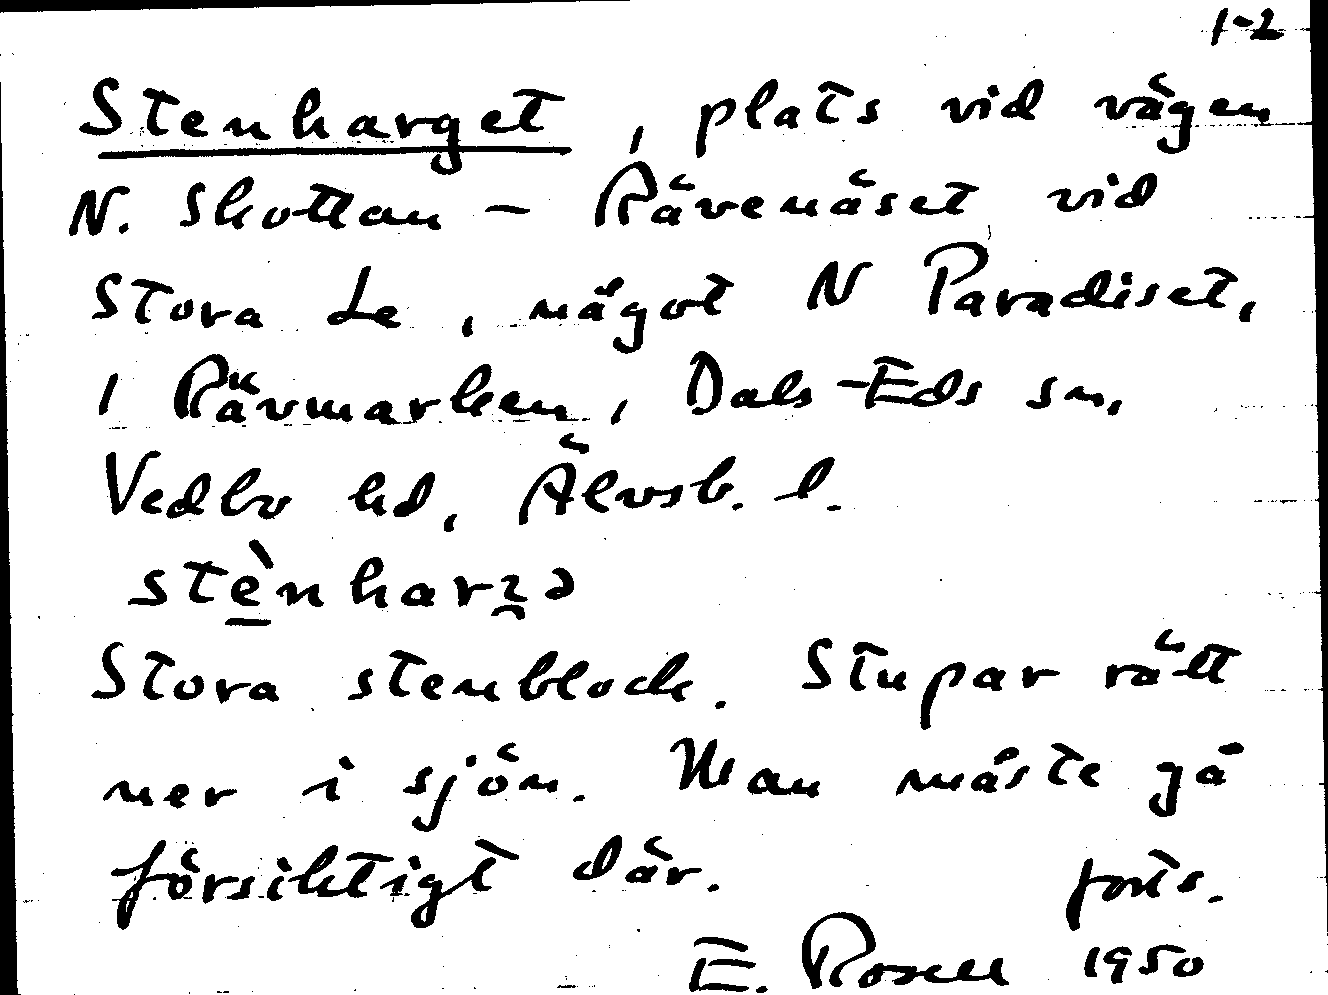 1-2
Stenharget, plats vid vägen
N. Skottan - Rävenäset vid
Stora Le, något N Paradiset,
i Rävmarken, Dals-Eds sn,
Vedbo hd, Älvsb. l.
Stora stenblock. Stupar rätt
ner i sjön. Man måste gå
försiktigt där. forts.
E. Rosell 1950